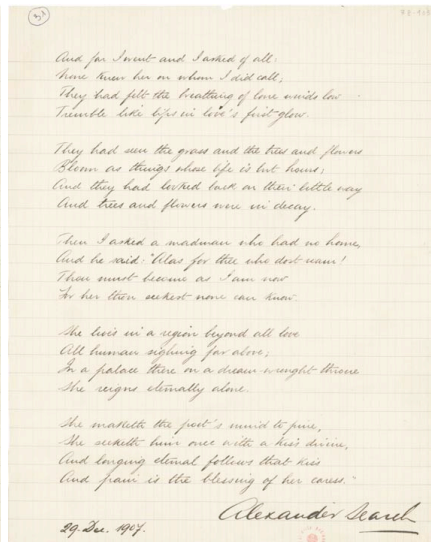 And far I went and I asked of all:
None knew her on whom I did call;
They had felt the breathing of lone winds low
Tremble like lips in love's first glow.
They had seen the grass and the trees and flowers
Bloom as things whose life is but hours;
And they had looked back on their little way
And trees and flowers were in decay.
Then I asked a madman who had no home,
And he said: "Alas for thee who dost roam!
Thou must become as I am now
For her thou seekest none can know.
She lives in a region beyond all love
All human sighing far above;
In a palace there on a dream-wrought throne
She reigns eternally alone.
She maketh the poet's mind to pine,
She seeketh him once with a kiss divine,
And longing eternal follows that kiss
And pain is the blessing of her caress."
Alexander Search
29. Dec. 1907.